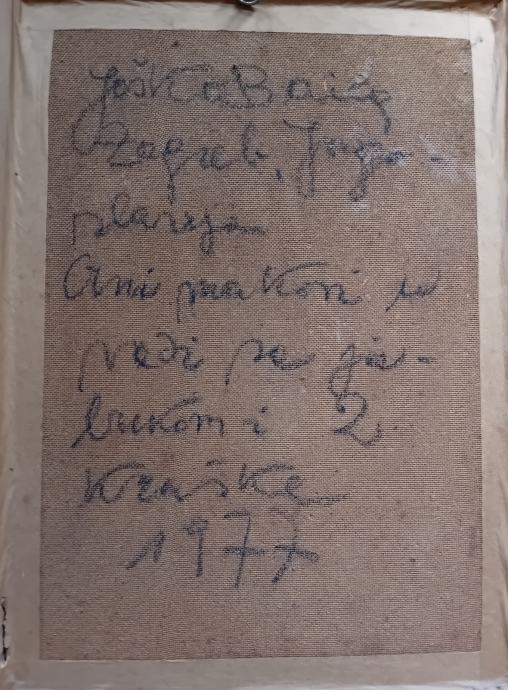 Joško Baića
Zagreb, Jugo-
slavija
Crni makovi u
vazi sa ja-
bukom i 2
kruške
1977